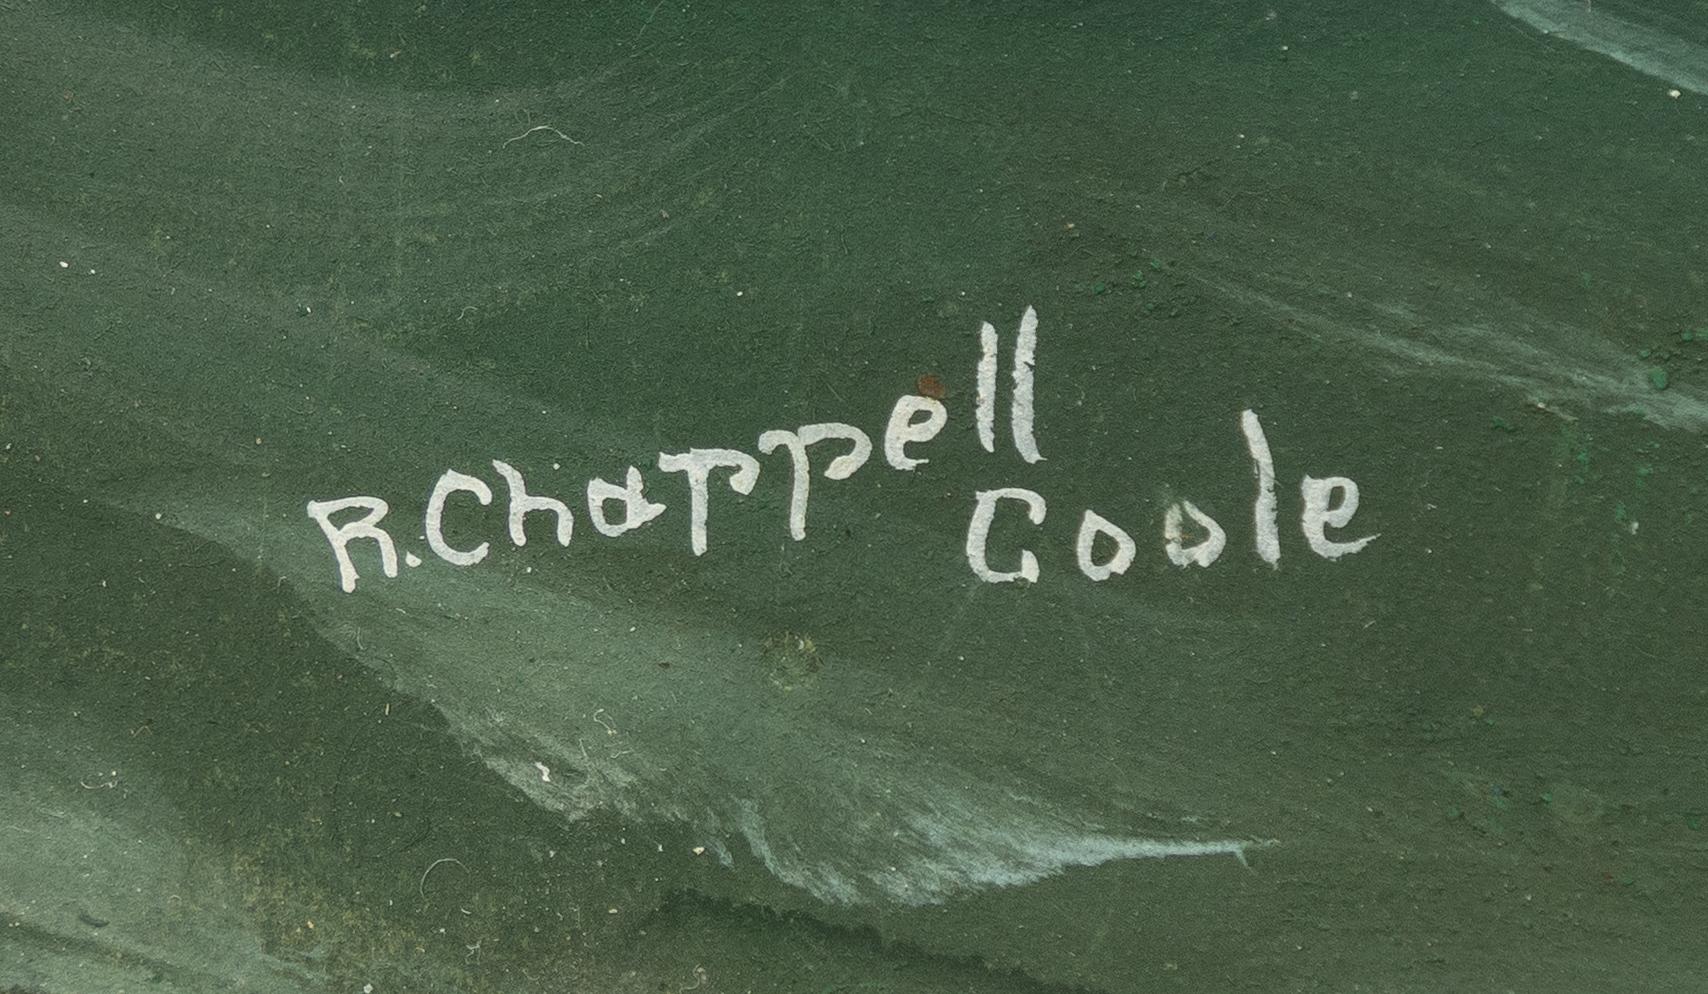 R. Chappell
Goole